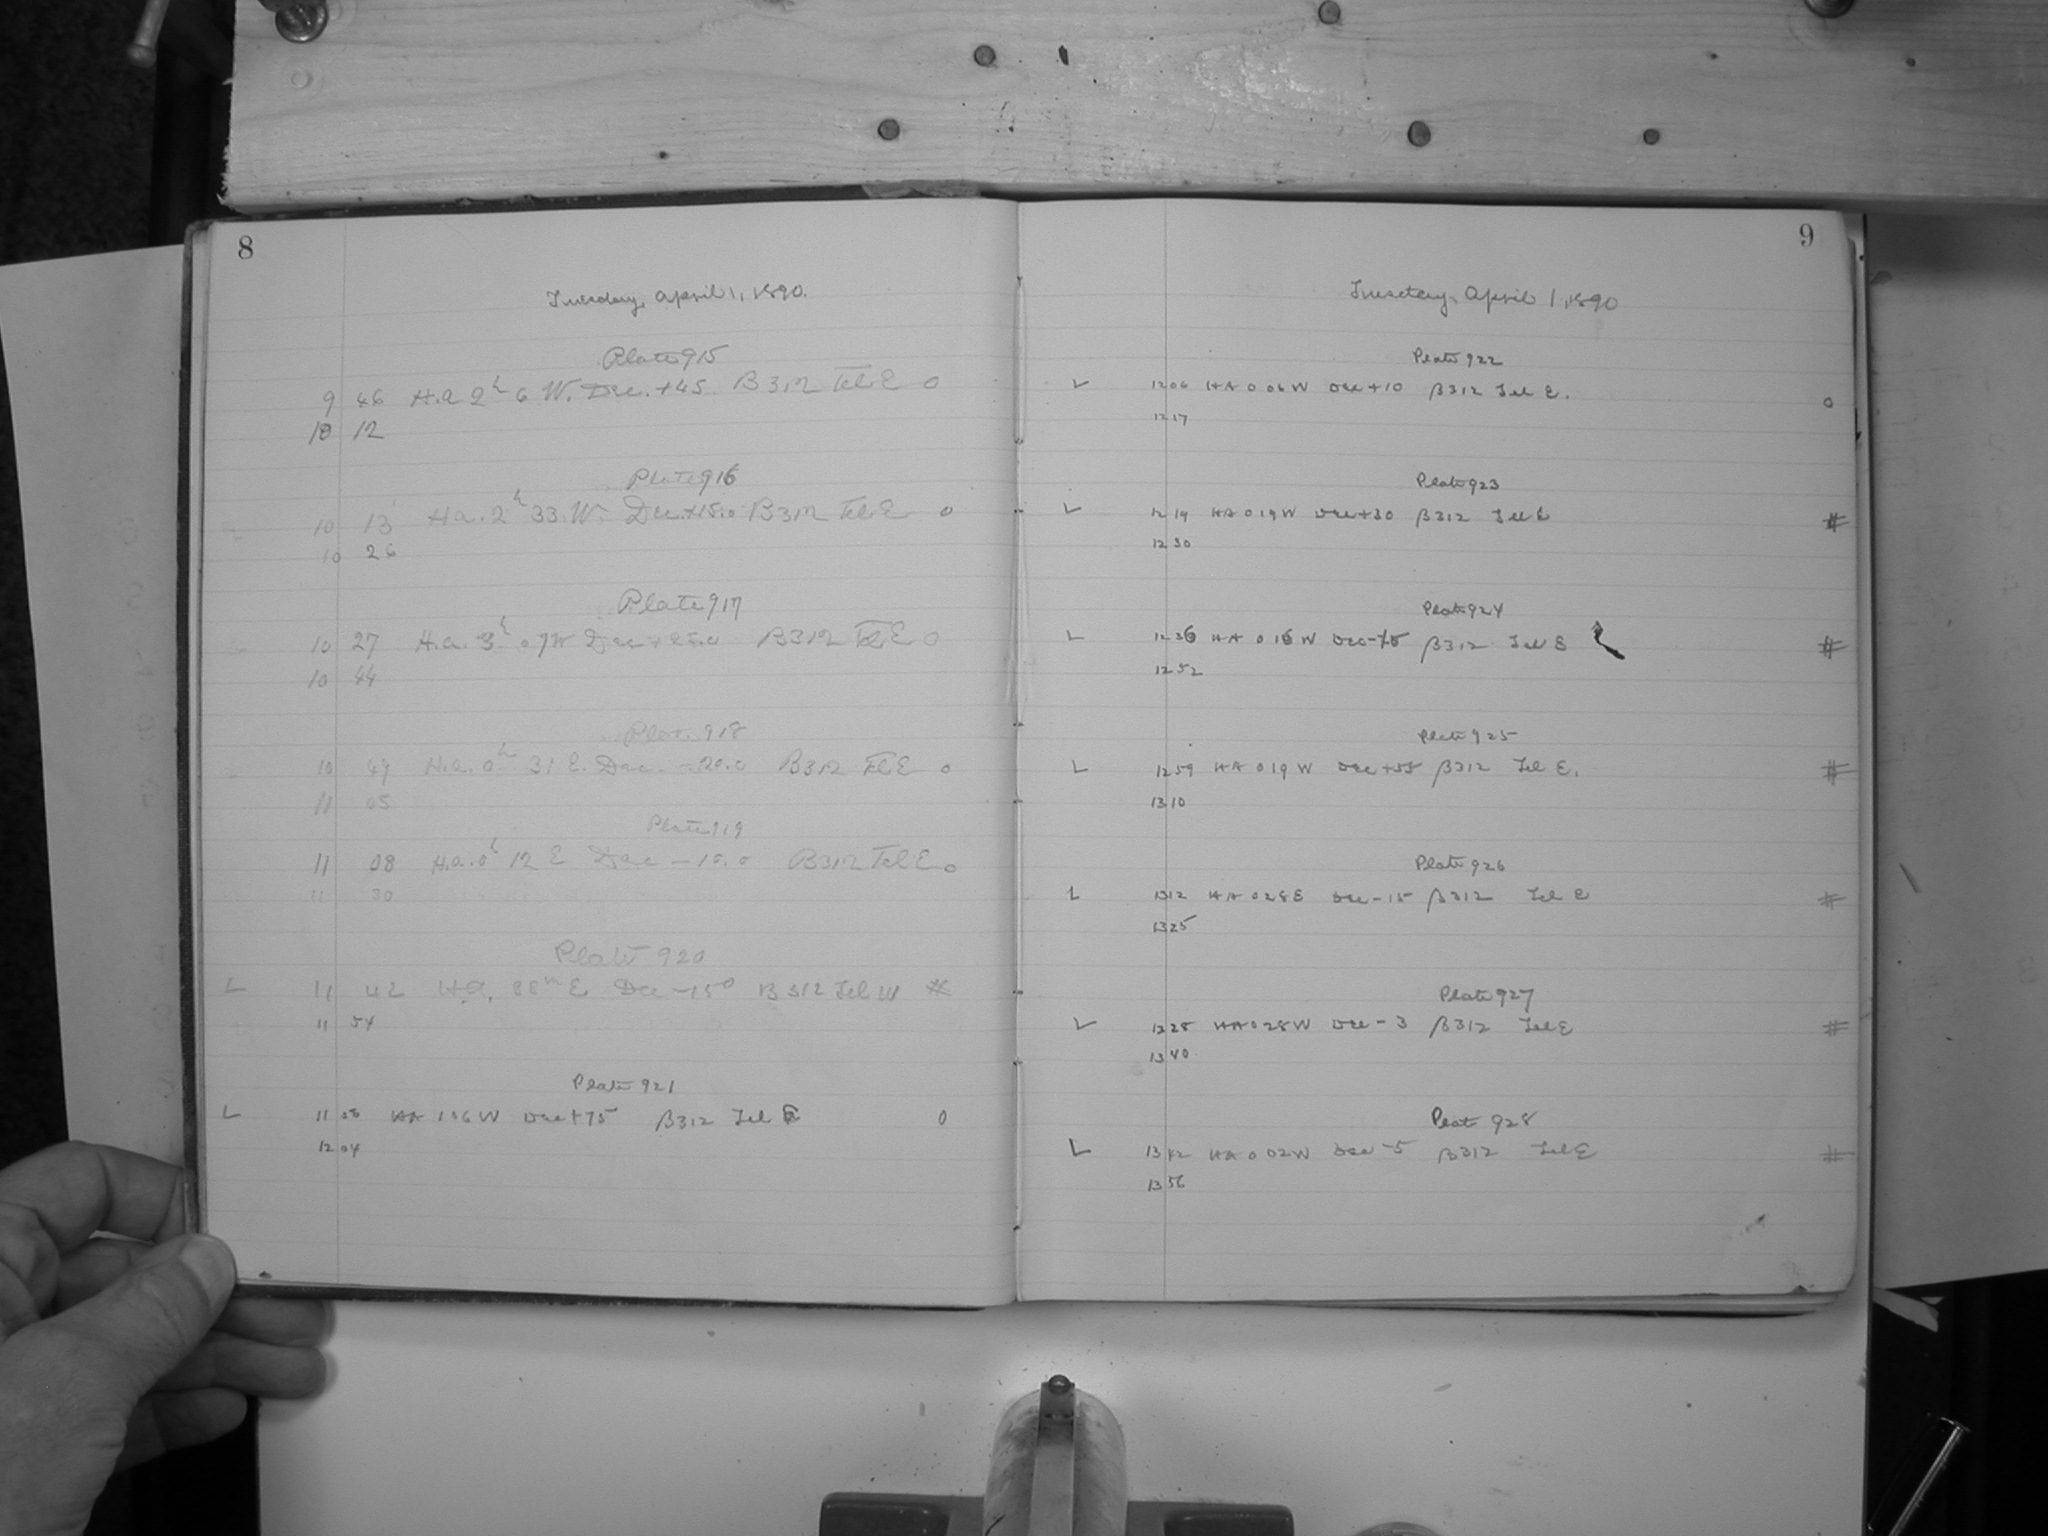 8
Tuesday, April 1, 1890.
Plate 915
9 46 H.a 2h 6 W. Dec. +45. B312 Tel E 0
10 12
Plate 916
10 13 H a. 2h 33. W. Dec. +15.0 B312 Tel E 0
10 26
Plate 917
10 27 H.a. 3h 07 W Dec + 25.0 B312 Tel E 0
10 44
Plate 918
10 49 H.a. 0h 31 E. Dec. -20.0 B312 Tel E 0
11 05
Plate 919
11 08 H.a. 0h 12 E Dec - 10.0 B312 Tel E 0
11 30
Plate 920
L 11 42 H.a. E Dec -15° B312 Tel W #
11 54
Plate 921
L 11 HA 1 06 W Dec +75 B312 Tel E 0
12 04
9
Tuesday, April 1, 1890
Plate 922
L 12 06 HA 0 06 W Dec +10 B312 Tel E. 0
12 17
Plate 923
L 12 19 HA 0 19 W Dec +30 B312 Tel E #
12 30
Plate 924
L 12 36 HA 0 16 W Dec B312 Tel E #
12 52
Plate 925
L 12 59 HA 0 19 W Dec +55 B312 Tel E. #
13 10
Plate 926
L 13 12 HA 0 28 E Dec -15 B312 Tel E #
13 25
Plate 927
L 28 HA 0 28 W Dec - 3 B312 Tel E #
13 40
Plate 928
L 13 42 HA 0 02 W Dec -5 B312 Tel E #
13 56